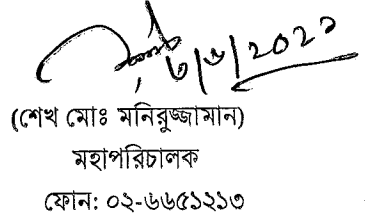 ৩/৬/২০২১
(শেখ মোঃ মনিরুজ্জামান)
মহাপরিচালক
ফোন: ০২-৬৬৫১২১৩